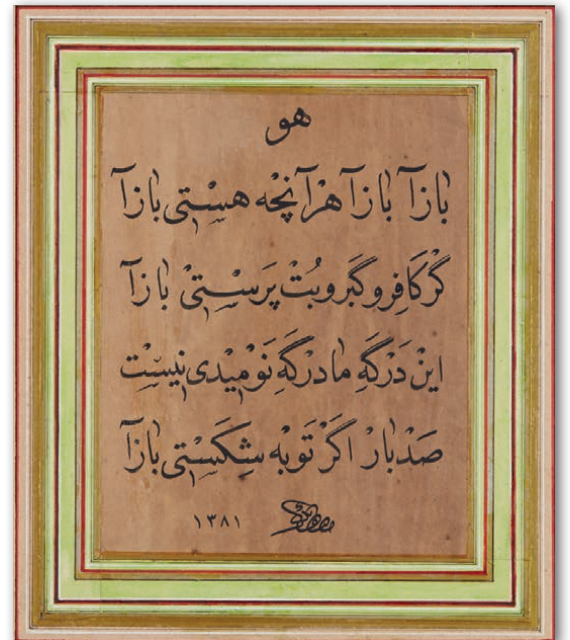 هو
بازآ بازآ هرآنچه هستی بازآ
گر کافِر و گَبر و بُتْ پَرَسْتیْ بازآ
اینْ دَرگَهِ ما درْگَهِ نَوْمیْدی نیسْت
صَدْبارْ اگَرْ تَوْبه شِکَسْتی بازآ
۱۳۸۱